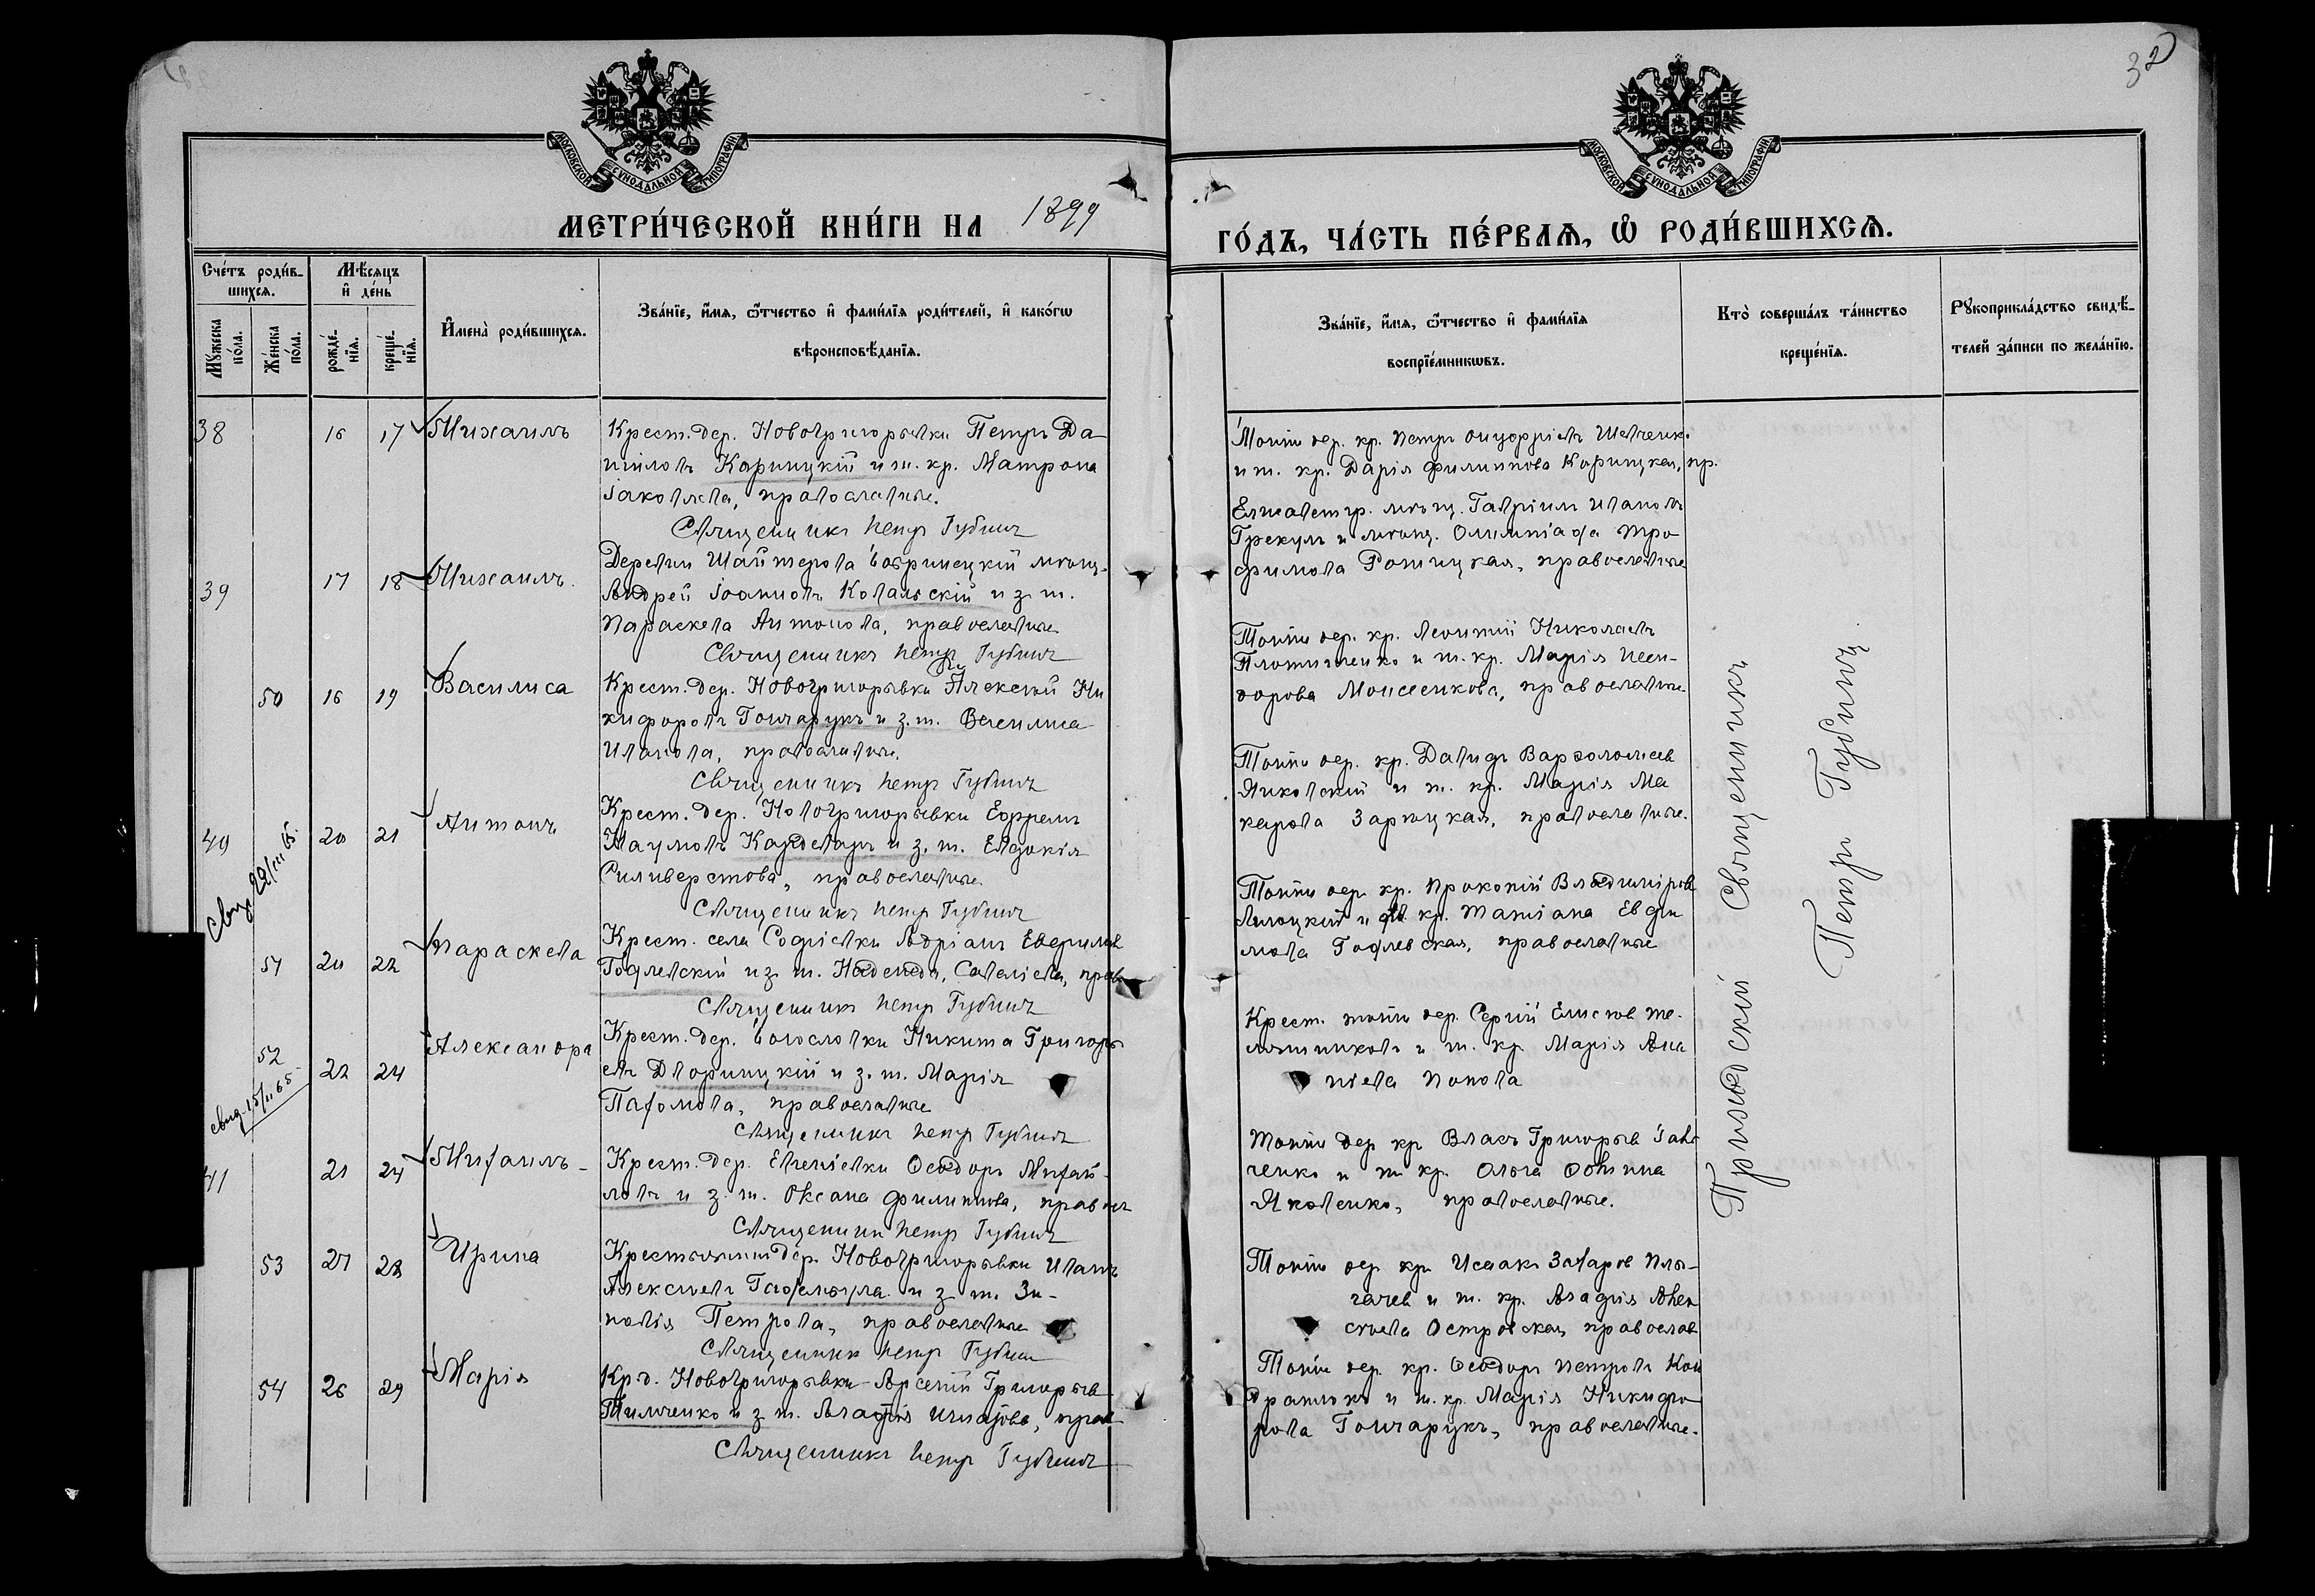 32
МОСКОВСКОЙ СѴНОДАЛЬНОЙ ТИПОГРАФІИ
МОСКОВСКОЙ СѴНОДАЛЬНОЙ ТИПОГРАФІИ
МЕТРИ́ЧЕСКОЙ КНИ́ГИ НА 1899
ГО́ДЪ, ЧА́СТЬ ПЕ́РВАѦ, Ѽ РОДИ́ВШИХСѦ.
Сче́тъ роди́в-
шихсѧ.
Мꙋ́жеска
по́ла.
Же́нска
по́ла.
Мѣ́сѧцъ
и҆ де́нь
рожде́-
нїѧ.
креще́-
нїѧ.
И҆мена̀ роди́вшихсѧ.
Зва́нїе, и҆́мѧ, ѻ҆́тчество и҆ фами́лїѧ роди́телей, и҆ како́гѡ
вѣроисповѣ́данїѧ.
Зва́нїе, и҆́мѧ, ѻ҆́тчество и҆ фами́лїѧ
воспрїе́мникѡвъ.
Кто̀ соверша́лъ та́инство
креще́нїѧ.
Рꙋкоприкла́дство свидѣ́-
телей за́писи по жела́нїю.
38 16 17 Михаилъ
Крест. дер. Новогригорьевки Петръ Да
ніиловъ Карпицкій и ж. кр. Матрона
Іаковлева, православные.
Священникъ Петръ Губинъ
Той же дер. кр. Петръ Онуфріевъ Шевченко
и ж. кр. Дарія Филиппова Карпицкая, пр.
39 17 18 Михаилъ
Деревни Шайтерова Бобринецкій мѣщ.
Андрей Іоанновъ Ковальскій и з. ж.
Параскева Антонова, православные
Священникъ Петръ Губинъ
Елисаветгр. мѣщ. Гавріилъ Ивановъ
Грекулъ и мѣщ. Олимпіада Тро
фимова Ракицкая, православные
50 16 19 Василиса
Крест. дер. Новогригорьевки Алексѣй Ни
кифоровъ Гончарукъ и з. ж. Василиса
Иванова, православные.
Священникъ Петръ Губинъ
Той же дер. кр. Леонтій Николаевъ
и ж. кр. Марія Иси-
дорова Моисеенкова, православные
40 20 21 Антонъ
Крест. дер. Новогригорьевки Ефремъ
Наумовъ Карделаръ и з. ж. Евдокія
Силиверстова, православные
Священникъ Петръ Губинъ
Той же дер. кр. Давидъ Варфоломеев
Янковскій и ж. кр. Марія Ма
карова Зарицкая, православные.
51 20 22 Параскева
Крест. села Софіевки Адріанъ
Гофлевскій и з. ж. Надежда Савеліева, прав
Священникъ Петръ Губинъ
Той же дер. кр. Прокопій Владиміров
и кр. Татіана Евфи
мова Гофлевская, православные
52 22 24 Александра
Крест. дер. Богословки Никита Григорь
евъ Дворницкій и з. ж. Марія
Пахомова, православные
Священникъ Петръ Губинъ
Крест. той же дер. Сергій
и ж. кр. Марія Ана
ніева Попова
41 21 24 Михаилъ
Крест. дер. Евгеніевки Ѳеодоръ Михай-
ловъ и з. ж. Оксана Филиппова, правос
Священник Петръ Губинъ
Той же дер кр Власъ Григорьев
ченко и ж кр. Ольга Ѳомина
Яковенко, православные.
53 27 28 Ирина
Крестьянинъ дер. Новогригорьевки Иванъ
Алексѣевъ и з ж. Зи-
новія Петрова, православные
Священникъ Петръ Губинъ
Той же дер кр Исаакъ Захаров
и ж. кр. Агафія Алек
сѣева Островская, православ
54 26 29 Марія
Кр. д. Новогригорьевки Арсеній Григорьев
Тимченко и з ж. Агафія Игнатова, прав
Священникъ Петръ Губинъ
Той же дер. кр. Ѳеодоръ Петровъ Кон
дратюкъ и ж. кр. Марія Никифо
рова Гончарукъ, православные.
Приходскій Священникъ
Петръ Губинъ